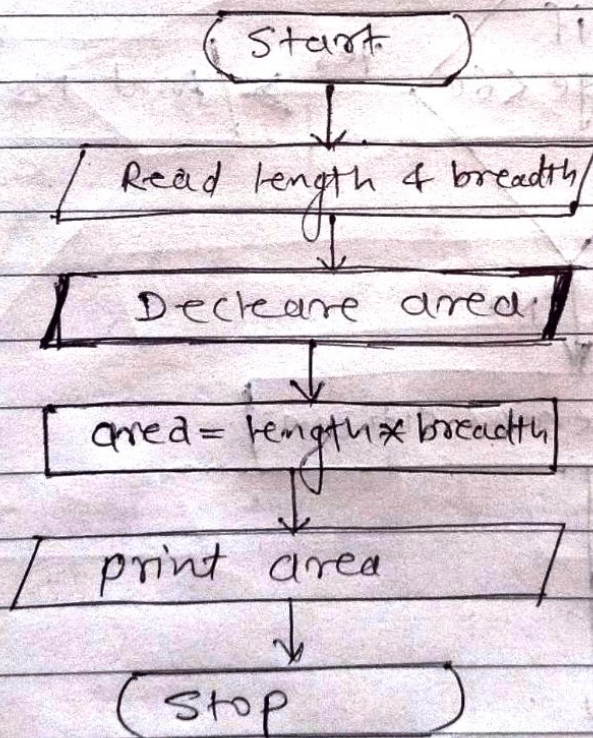 Start.
Read length & breadth
Decleare area
area = length * breadth
print area
Stop